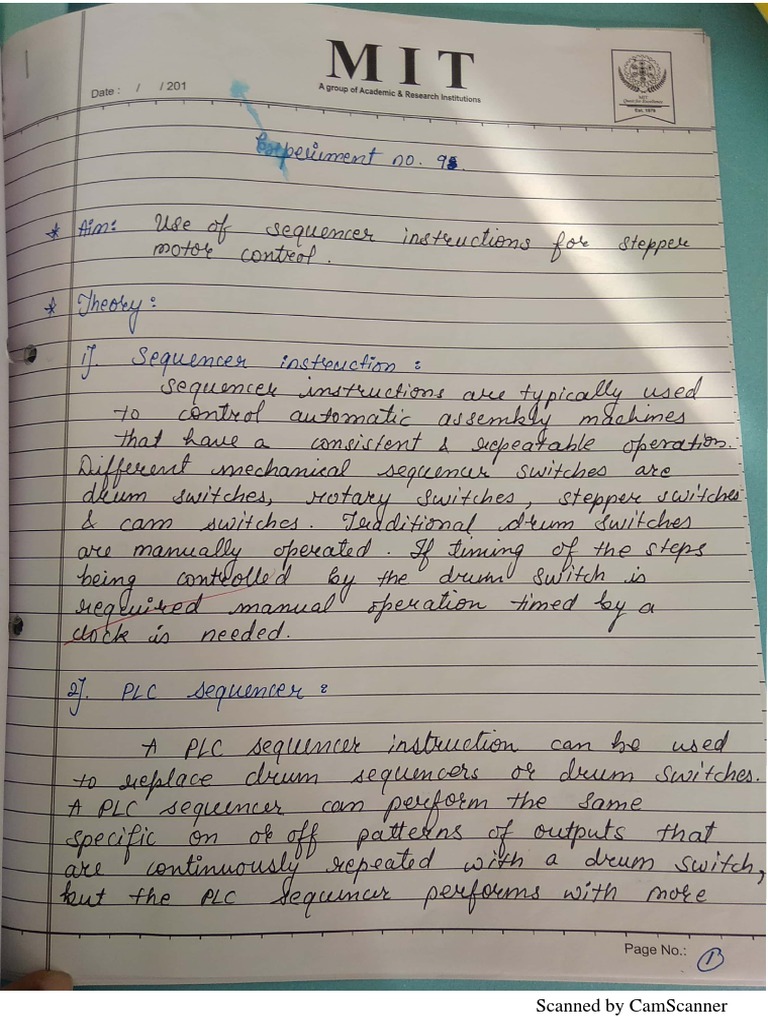 MIT
A group of Academic & Research Institutions
Date : / / 201
MIT
Quest for Excellence
Est. 1979
Experiment no. 9
* Aim: Use of sequencer instructions for stepper
motor control.
* Theory:
1]. Sequencer instruction :
Sequencer instructions are typically used
to control automatic assembly machines
that have a consistent & repeatable operation.
Different mechanical sequencer switches are
drum switches, rotary switches, stepper switches
& cam switches. Traditional drum switches
are manually operated. If timing of the steps
being controlled by the drum switch is
required manual operation timed by a
clock is needed.
2]. PLC sequencer :
A PLC sequencer instruction can be used
to replace drum sequencers or drum switches.
A PLC sequencer can perform the same
specific on or off patterns of outputs that
are continuously repeated with a drum switch,
but the PLC sequencer performs with more
Page No.: 1
Scanned by CamScanner